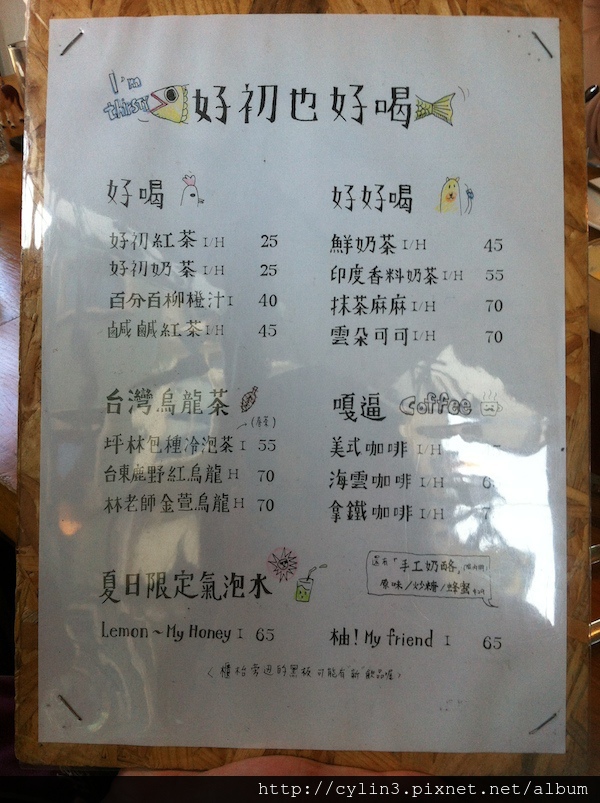 I'm thirsty
好初也好喝
好喝
好初紅茶 I/H 25
好初奶茶 I/H 25
百分百柳橙汁 I 40
鹹鹹紅茶 I/H 45
好好喝
鮮奶茶 I/H 45
印度香料奶茶 I/H 55
抹茶麻麻 I/H 70
雲朵可可 I/H 70
台灣烏龍茶
坪林包種冷泡茶 I 55
台東鹿野紅烏龍 H 70
林老師金萱烏龍 H 70
嘎逼 Coffee
美式咖啡 I/H
海雲咖啡 I/H 6
拿鐵咖啡 I/H 7
還有「手工奶酪」
原味/炒糖/蜂蜜
夏日限定氣泡水
Lemon~My Honey I 65
柚!My friend I 65
(櫃枱旁邊的黑板可能有"新"飲品喔)
http://cylin3.pixnet.net/album